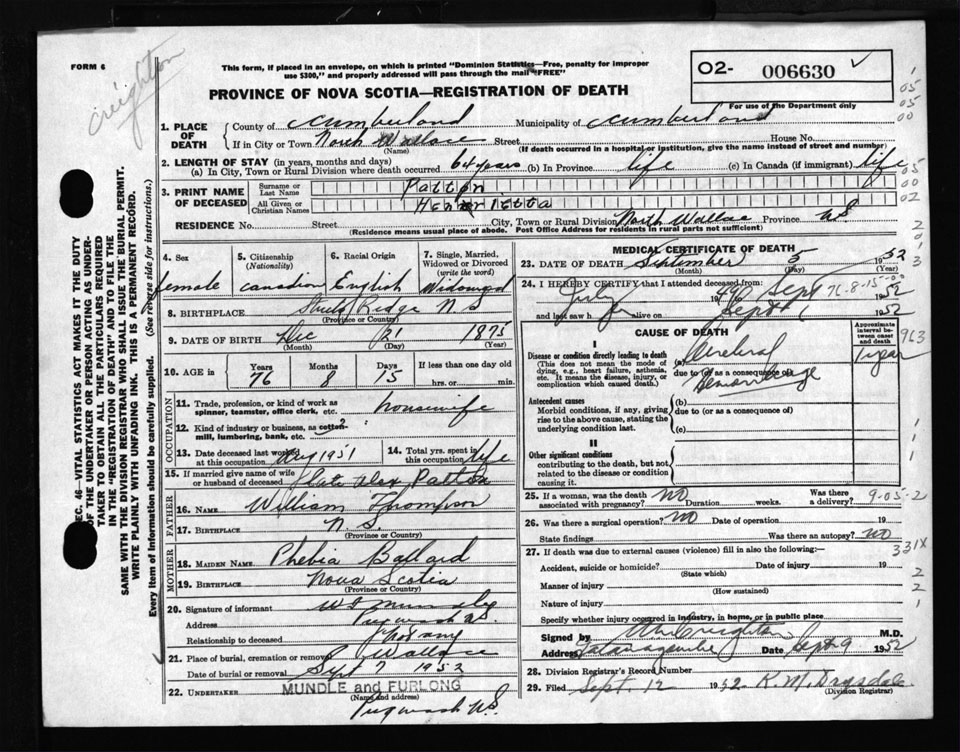 Creighton
FORM 6
This form, if placed in an envelope, on which is printed "Dominion Statistics—Free, penalty for improper
use $300," and properly addressed will pass through the mail "FREE"
O2- 006630 ✓
PROVINCE OF NOVA SCOTIA—REGISTRATION OF DEATH
For use of the Department only
1. PLACE OF DEATH
County of Cumberland Municipality of Cumberland
If in City or Town North Wallace Street House No.
(Name) (If death occurred in a hospital or institution, give the name instead of street and number)
2. LENGTH OF STAY (in years, months and days)
(a) In City, Town or Rural Division where death occurred 64 years (b) in Province life (c) In Canada (if immigrant) life
3. PRINT NAME OF DECEASED
Surname or Last Name Patton
All Given or Christian Names Henrietta
RESIDENCE No. Street City, Town or Rural Division North Wallace Province NS
(Residence means usual place of abode. Post Office Address for residents in rural parts not sufficient)
4. Sex female
5. Citizenship (Nationality) Canadian
6. Racial Origin English
7. Single, Married, Widowed or Divorced (write the word) Widowed
8. BIRTHPLACE Ridge N S
(Province or Country)
9. DATE OF BIRTH Dec 21 1875
(Month) (Day) (Year)
10. AGE in Years 76 Months 8 Days 15 If less than one day old hrs. or min.
OCCUPATION
11. Trade, profession, or kind of work as spinner, teamster, office clerk, etc. housewife
12. Kind of industry or business, as cotton-mill, lumbering, bank, etc.
13. Date deceased last worked at this occupation Aug 1951
14. Total yrs. spent in this occupation life
15. If married give name of wife or husband of deceased late Alex Patton
FATHER
16. NAME William Thompson
17. BIRTHPLACE N. S.
(Province or Country)
MOTHER
18. MAIDEN NAME Phebia Ballard
19. BIRTHPLACE Nova Scotia
(Province or Country)
20. Signature of informant
Address Pugwash N.S.
Relationship to deceased
21. Place of burial, cremation or removal Wallace
Date of burial or removal Sept 7 1952
22. UNDERTAKER MUNDLE and FURLONG
(Name and address)
Pugwash N.S.
MEDICAL CERTIFICATE OF DEATH
23. DATE OF DEATH September 5 1952
(Month) (Day) (Year)
24. I HEREBY CERTIFY that I attended deceased from:
July 19 to Sept 1952
and last saw h alive on Sept 1952
76-8-15
CAUSE OF DEATH
Approximate interval between onset and death
I
Disease or condition directly leading to death
(This does not mean the mode of dying, e.g., heart failure, asthenia, etc. It means the disease, injury, or complication which caused death.)
(a) Cerebral 1 year
due to (or as a consequence of)
Hemorrhage
Antecedent causes
Morbid conditions, if any, giving rise to the above cause, stating the underlying condition last.
(b)
due to (or as a consequence of)
(c)
II
Other significant conditions
contributing to the death, but not related to the disease or condition causing it.
25. If a woman, was the death associated with pregnancy? No Duration weeks. Was there a delivery?
9-05-2
26. Was there a surgical operation? No Date of operation 19
State findings Was there an autopsy? No
27. If death was due to external causes (violence) fill in also the following:—
331X
Accident, suicide or homicide? Date of injury 19
(State which)
Manner of injury
(How sustained)
Nature of injury
Specify whether injury occurred in industry, in home, or in public place
Signed by Creighton M.D.
Address Tatamagouche Date Sept 9 1952
28. Division Registrar's Record Number
29. Filed Sept. 12 1952 R. M. Drysdale
(Division Registrar)
SEC. 46—VITAL STATISTICS ACT MAKES IT THE DUTY
OF THE UNDERTAKER OR PERSON ACTING AS UNDER-
TAKER TO OBTAIN ALL THE PARTICULARS REQUIRED
IN THE "REGISTRATION OF DEATH" AND TO FILE THE
SAME WITH THE DIVISION REGISTRAR WHO SHALL ISSUE THE BURIAL PERMIT.
WRITE PLAINLY WITH UNFADING INK. THIS IS A PERMANENT RECORD.
Every item of Information should be carefully supplied. (See reverse side for instructions.)